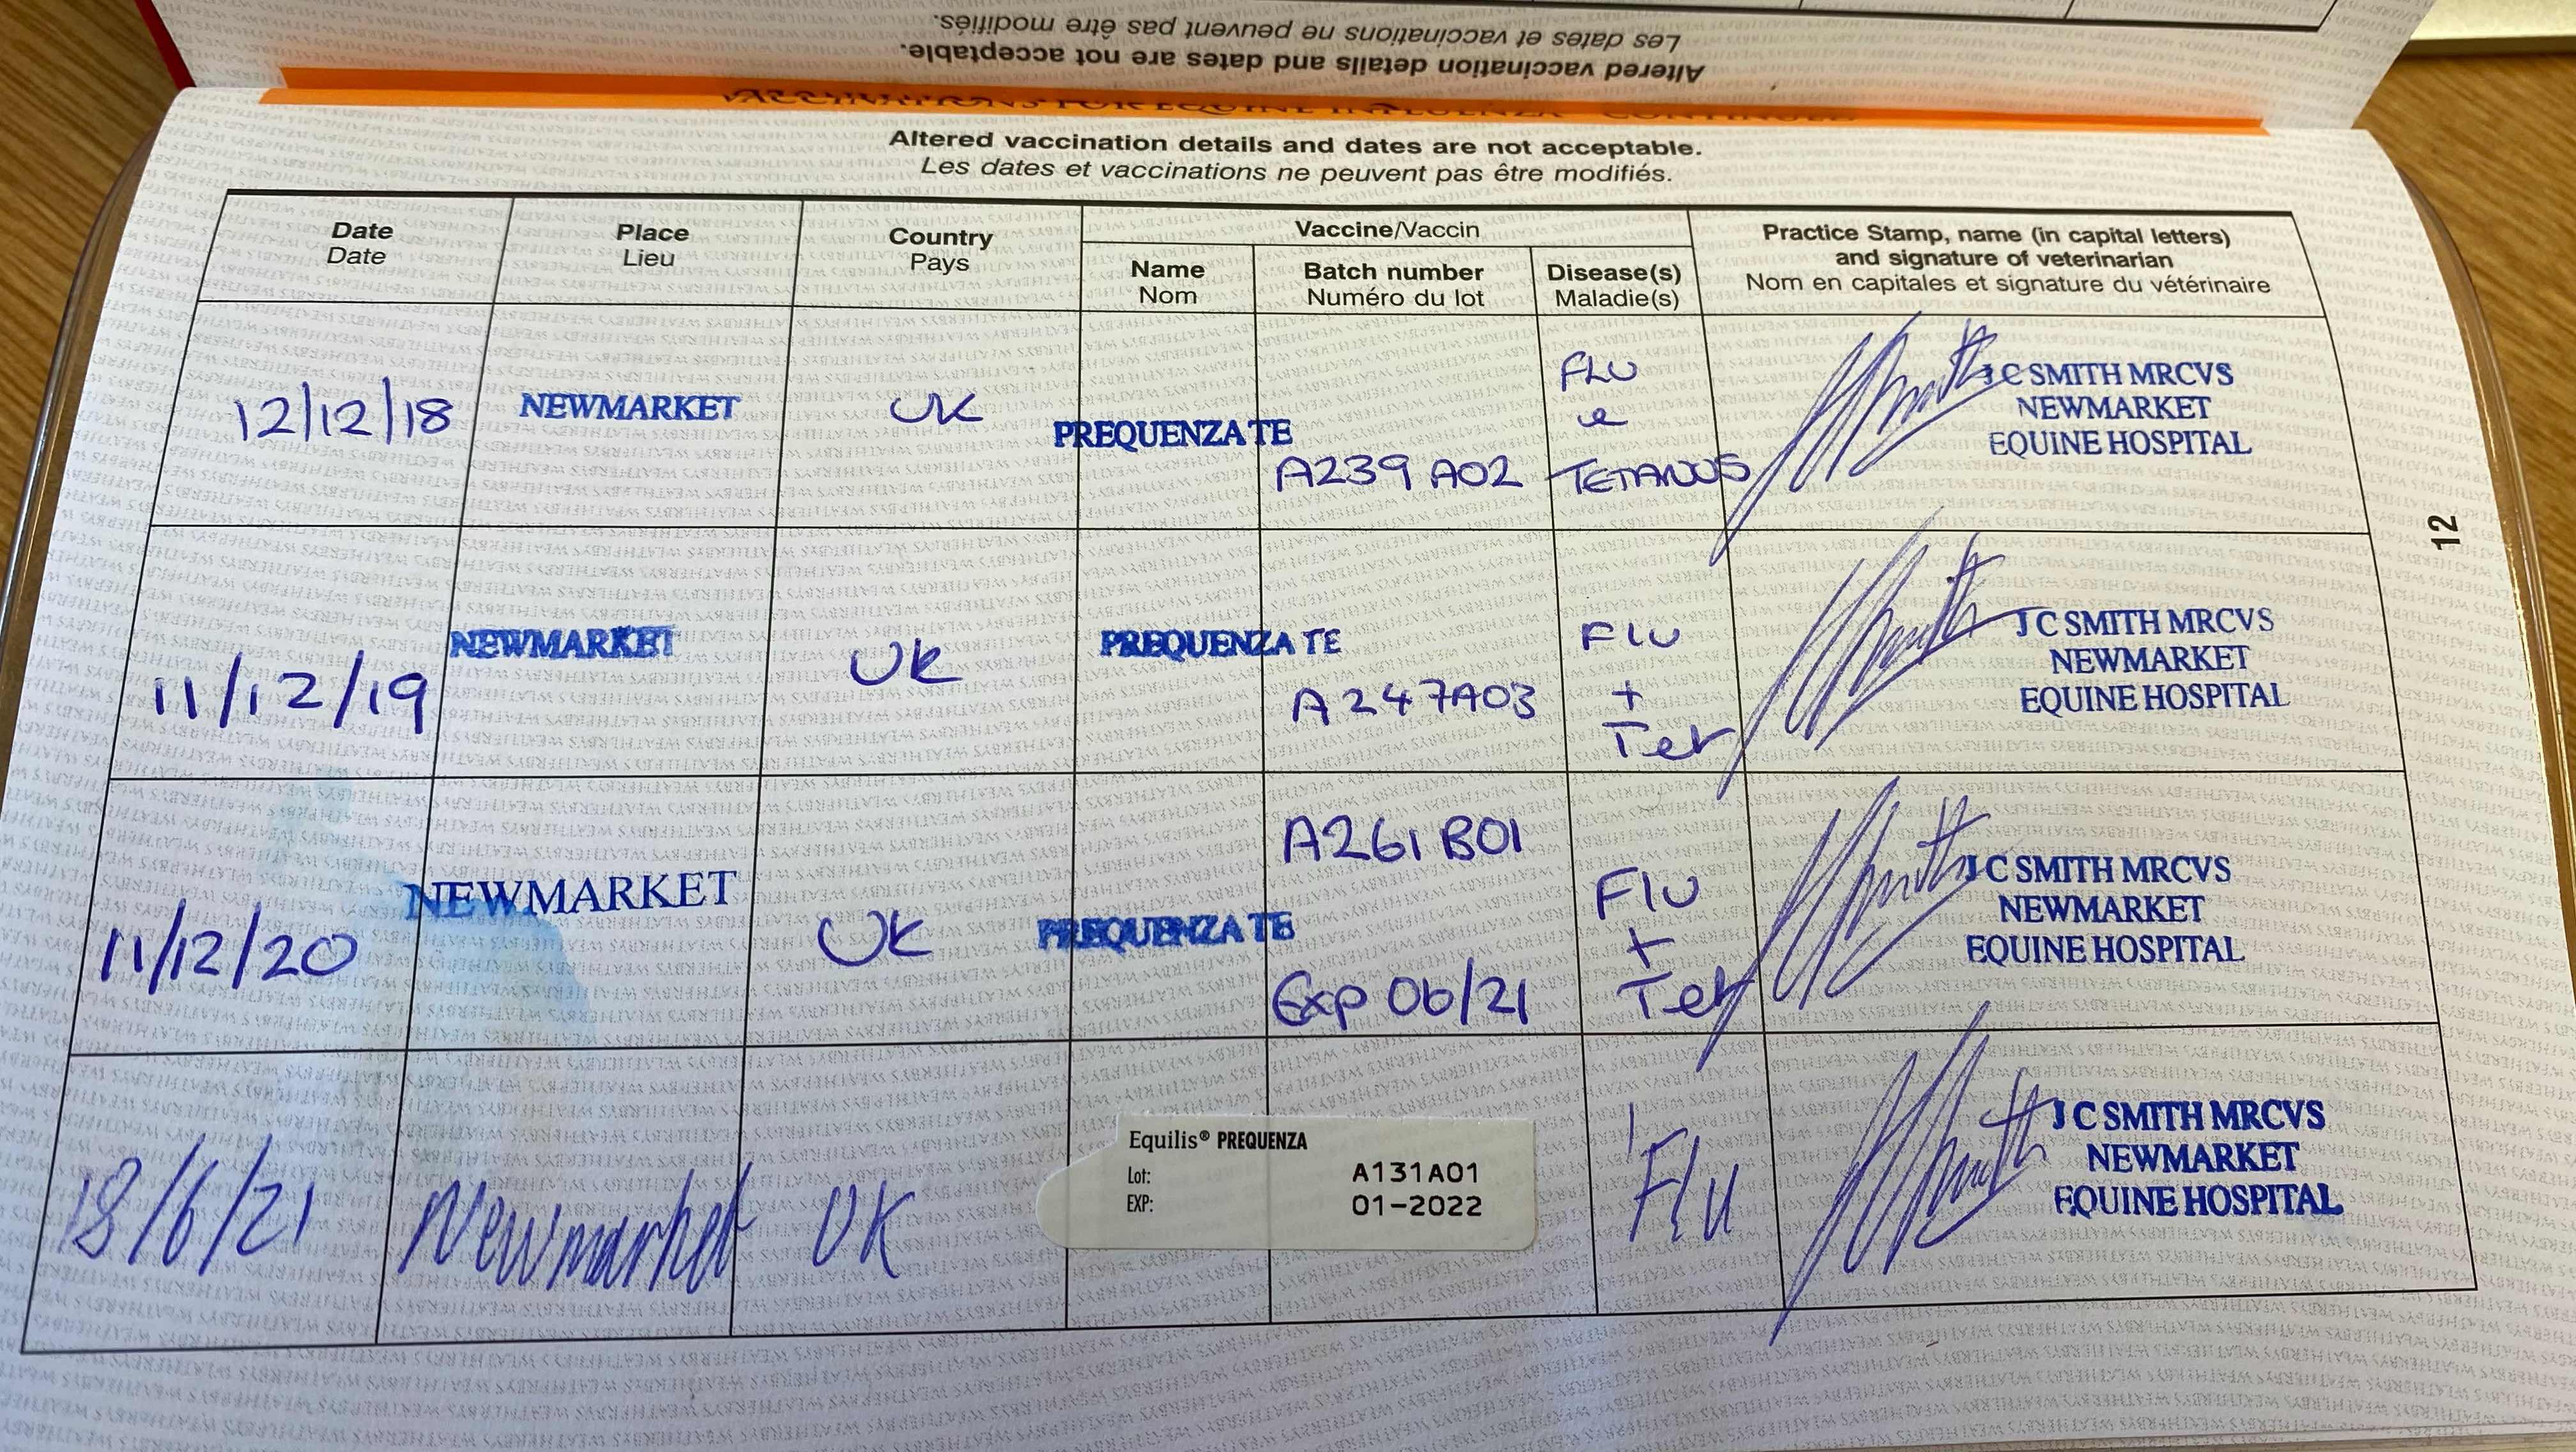 Les dates et vaccinations ne peuvent pas être modifiés.
Altered vaccination details and dates are not acceptable.
VACCINATIONS FOR EQUINE INFLUENZA CONTINUED
Altered vaccination details and dates are not acceptable.
Les dates et vaccinations ne peuvent pas être modifiés.
Date
Date
Place
Lieu
Country
Pays
Vaccine/Vaccin
Name
Nom
Batch number
Numéro du lot
Disease(s)
Maladie(s)
Practice Stamp, name (in capital letters)
and signature of veterinarian
Nom en capitales et signature du vétérinaire
12/12/18
NEWMARKET
UK
PREQUENZA TE
A239 A02
FLU
e
TETANUS
J C SMITH MRCVS
NEWMARKET
EQUINE HOSPITAL
11/12/19
NEWMARKET
UK
PREQUENZA TE
A247A03
Flu
+
Tet
J C SMITH MRCVS
NEWMARKET
EQUINE HOSPITAL
11/12/20
NEWMARKET
UK
PREQUENZA TE
A261 B01
Exp 06/21
Flu
+
Tet
J C SMITH MRCVS
NEWMARKET
EQUINE HOSPITAL
18/6/21
Newmarket
UK
Equilis® PREQUENZA
Lot: A131A01
EXP: 01-2022
Flu
J C SMITH MRCVS
NEWMARKET
EQUINE HOSPITAL
12